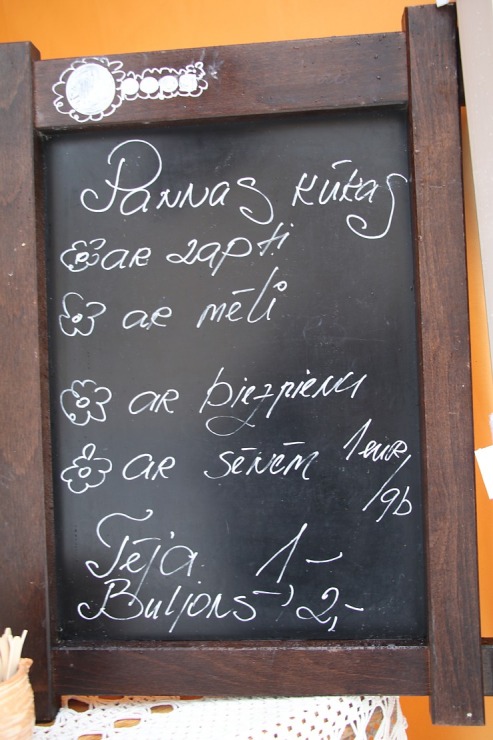 Pannas kūkas
ar zapti
ar mēli
ar biezpienu
ar sēnēm 1 eur,
/gb
Tēja 1,-
Buljons - 2,-